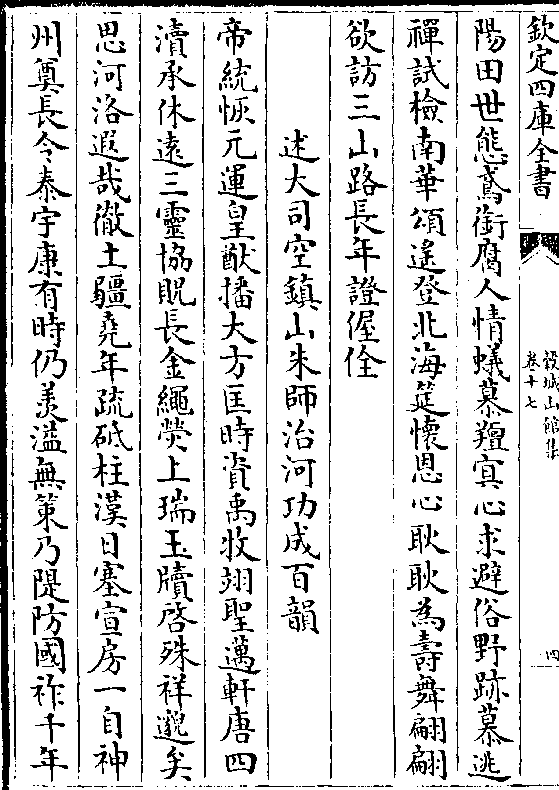 欽定四庫全書
穀城山館集
卷十七
四
陽田世態鳶銜腐人情蟻慕羶㝠心求避俗野跡慕逃
禪試檢南華頌遙登北海筵懷恩心耿耿為壽舞翩翩
欲訪三山路長年證偓佺
述大司空鎮山朱師治河功成百韻
帝統恢元運皇猷播大方匡時資禹牧翊聖邁軒唐四
瀆承休遠三靈協貺長金繩熒上瑞玉牘啓殊祥邈矣
思河洛遐哉徹土疆堯年疏砥柱漢日塞宣房一自神
州奠長令泰宇康有時仍羨溢無策乃隄防國祚千年